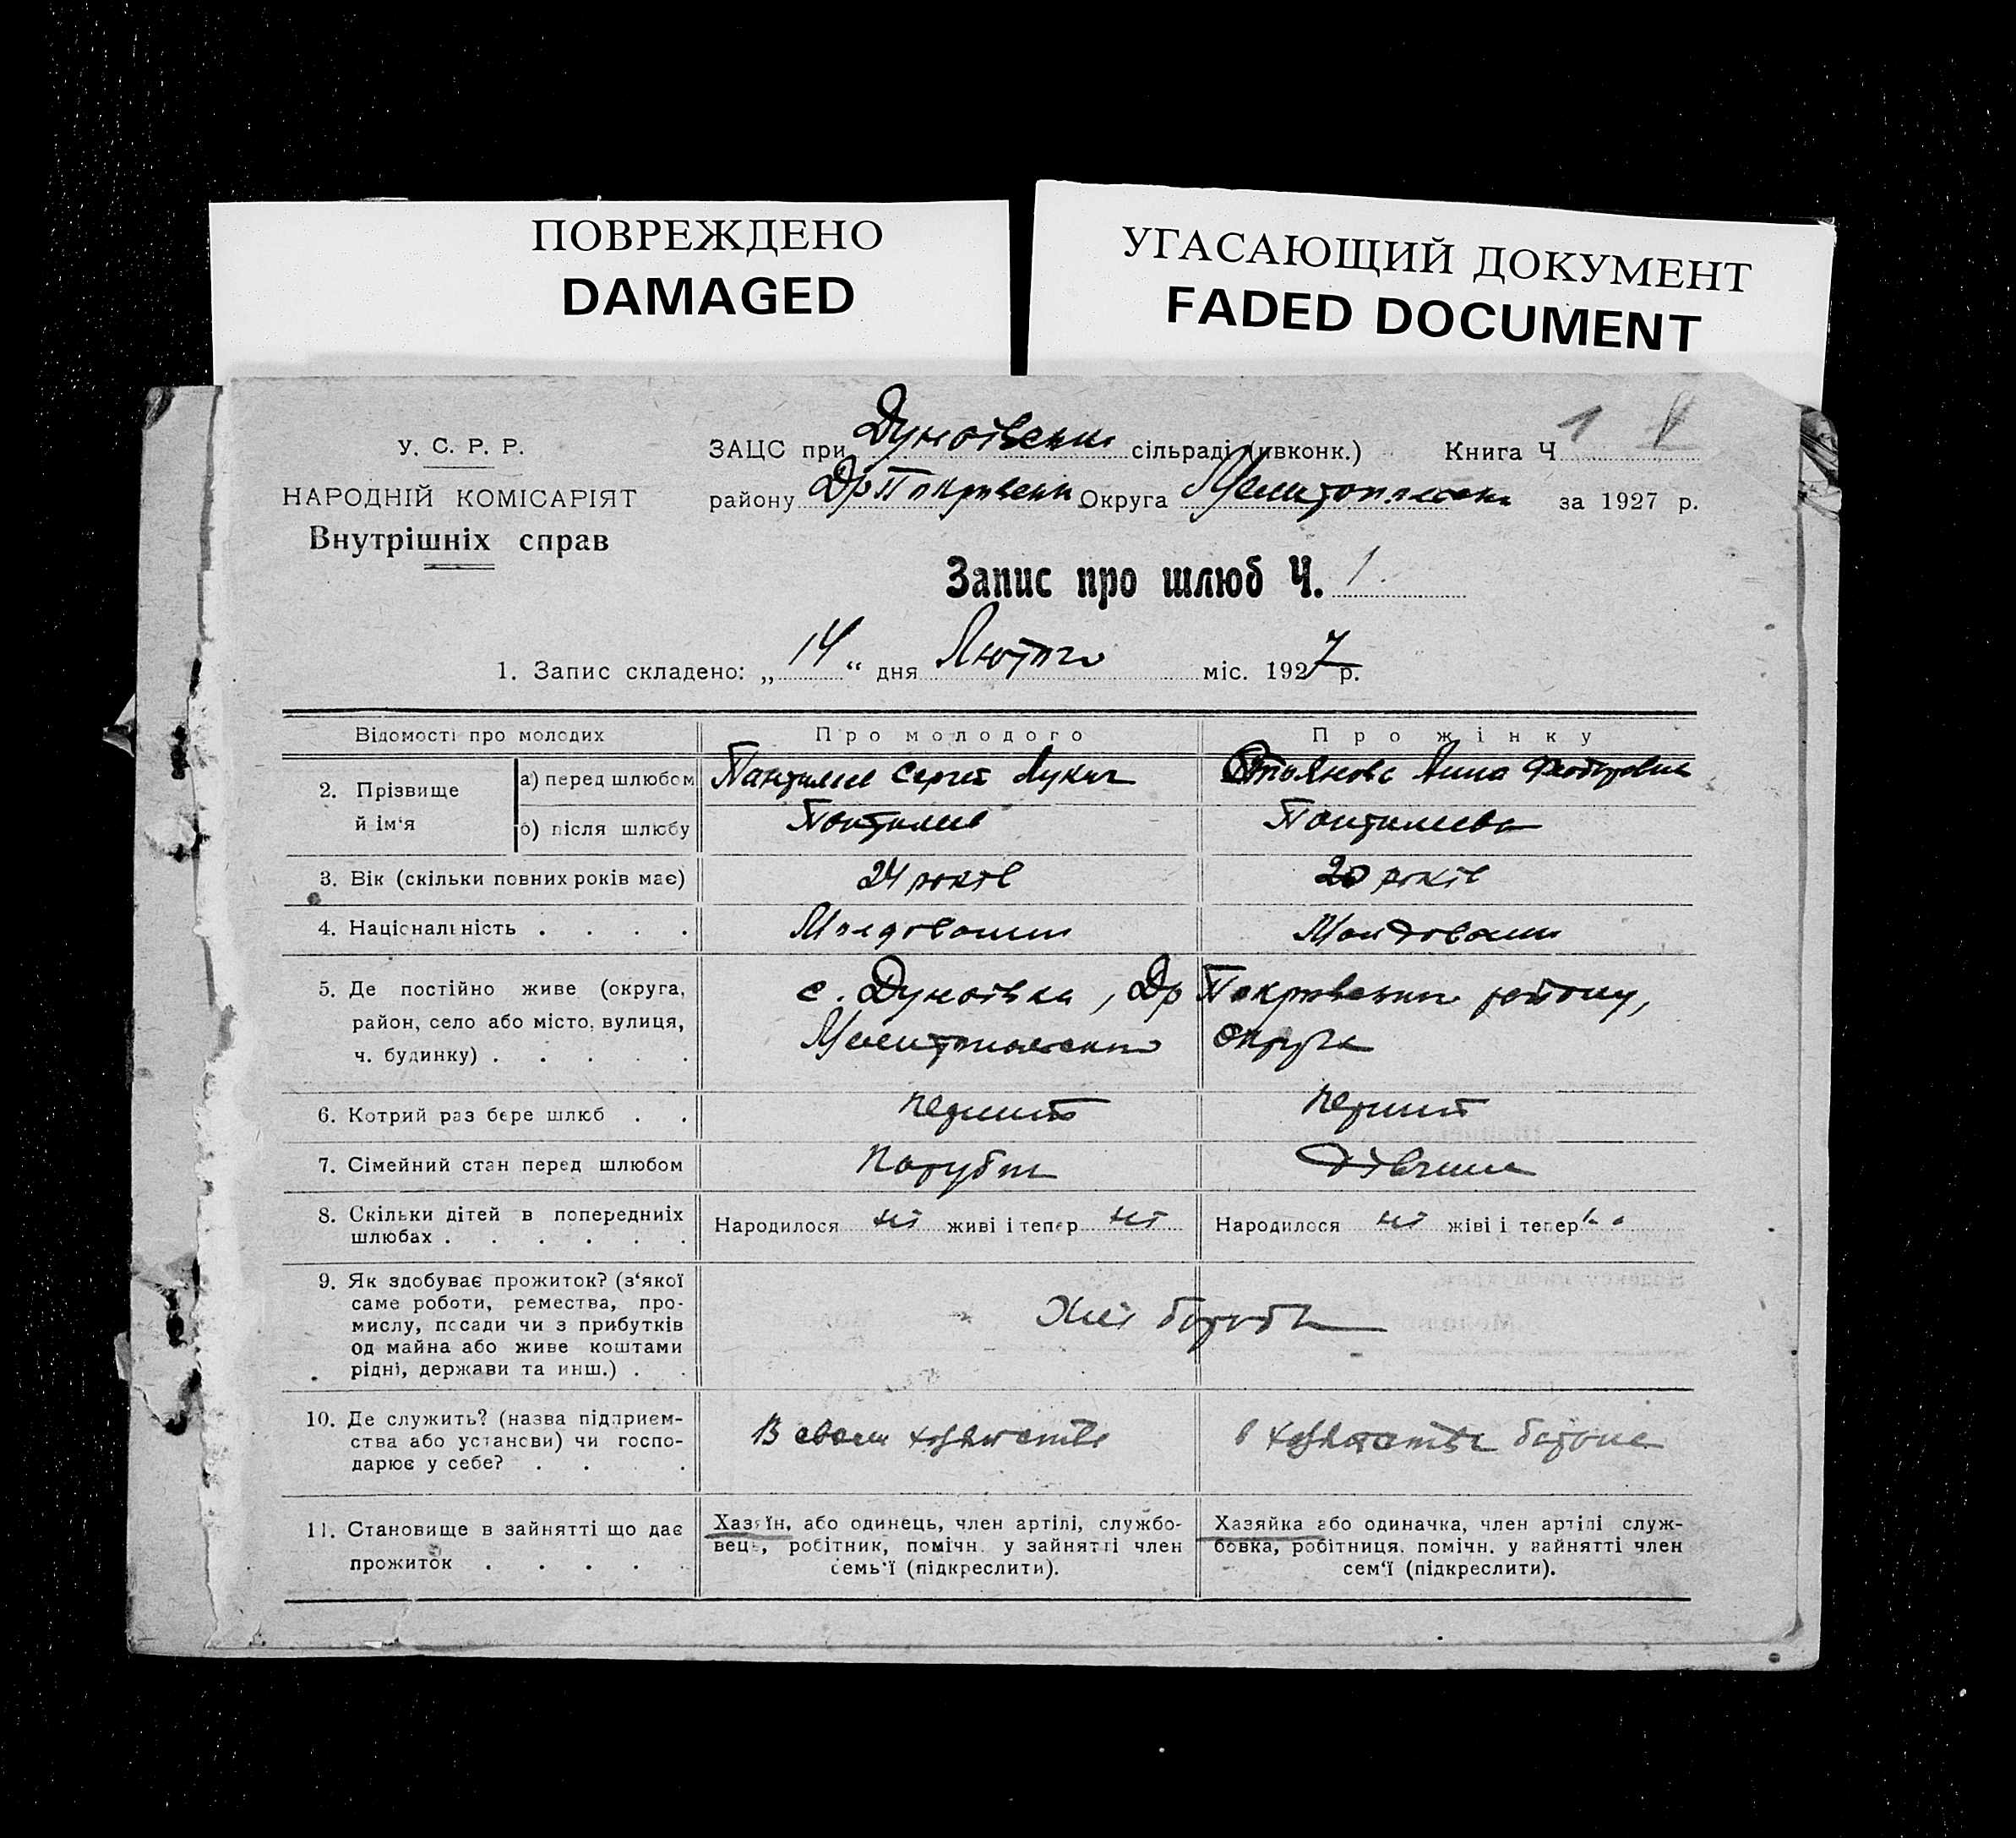 ПОВРЕЖДЕНО
DAMAGED
УГАСАЮЩИЙ ДОКУМЕНТ
FADED DOCUMENT
У. С. Р. Р.
НАРОДНІЙ КОМІСАРІЯТ
Внутрішніх справ
ЗАЦС при Дунаївськ сільраді (ивконк.) Книга Ч 1
району Др Покровськ Округа Мелитопольськ за 1927 р.
Запис про шлюб Ч. 1
1. Запис складено: „ 14 “ дня Лютого міс. 1927 р.
Відомості про молодих Про молодого Про жінку
2. Прізвище й ім‘я
а) перед шлюбом Сергій Лукич Анна
б) після шлюбу
3. Вік (скільки повних років має) 24 років 20 років
4. Національність . . . . Молдован Молдован
5. Де постійно живе (округа, с. Дунаівка, Др Покровського району,
район, село або місто, вулиця, Мелитопольської округи
ч. будинку) . . . . .
6. Котрий раз бере шлюб . . перший перший
7. Сімейний стан перед шлюбом Парубок Дівчина
8. Скільки дітей в попередниіх
шлюбах . . . . . . Народилося ні живі і тепер ні Народилося ні жіві і тепер
9. Як здобуває прожиток? (з‘якої
саме роботи, ремества, про-
мислу, посади чи з прибутків Хлібороб
од майна або живе коштами
рідні, держави та инш.) . .
10. Де служить? (назва підприєм-
ства або установи) чи госпо- В своем хозяйстве в хозяйстве
дарює у себе? . . . .
11. Становище в зайнятті що дає
прожиток . . . . .
Хазяїн, або одинець, член артілі, службо-
вець, робітник, помічн. у зайнятті член
семь‘ї (підкреслити).
Хазяйка або одиначка, член артілі служ-
бовка, робітниця. помічн. у зайнятті член
сем‘ї (підкреслити).